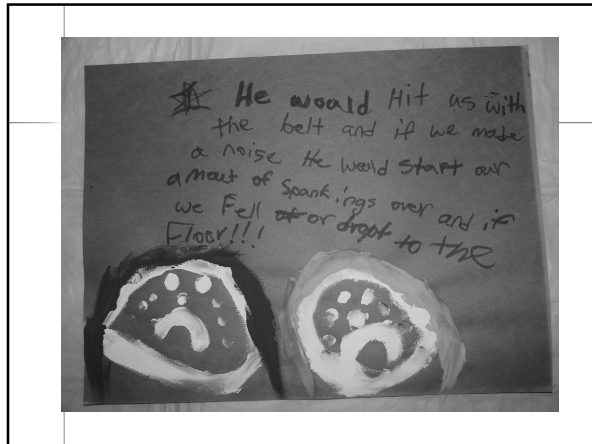 He would Hit us with
the belt and if we made
a noise He would start our
amout of Spankings over and if
we Fell or dropt to the
Floor!!!